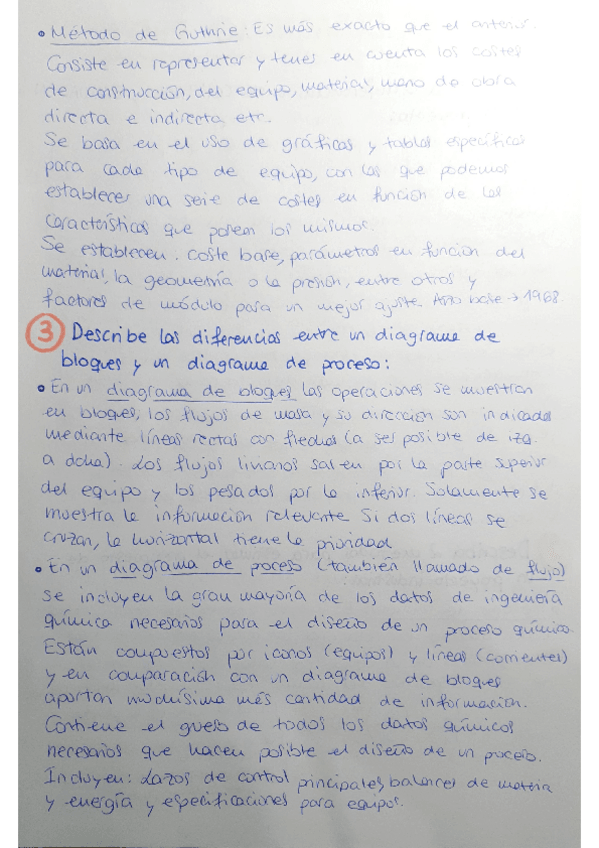 • Método de Guthrie: Es más exacto que el anterior.
Consiste en representar y tenes en cuenta los costes
de construcción, del equipo, material, mano de obra
directa e indirecta, etc.
Se basa en el uso de gráficas y tablas específicas
para cada tipo de equipo, con las que podemos
establecer una serie de costes en función de las
características que poseen los mismos.
Se establecen: coste base, parámetros en función del
material, la geometría o la presión, entre otros y
factores de módulo para un mejor ajuste. Año base → 1968.
③ Describe las diferencias entre un diagrama de
bloques y un diagrama de proceso:
• En un diagrama de bloques las operaciones se muestran
en bloques, los flujos de masa y su dirección son indicados
mediante líneas rectas con flechas (a ser posible de izq.
a dcha). Los flujos livianos salen por la parte superior
del equipo y los pesados por la inferior. Solamente se
muestra la información relevante. Si dos líneas se
cruzan, la horizontal tiene la prioridad
• En un diagrama de proceso (también llamado de flujo)
se incluyen la gran mayoría de los datos de ingeniería
química necesarios para el diseño de un proceso químico.
Están compuestos por iconos (equipos) y líneas (corrientes)
y en comparación con un diagrama de bloques
aportan muchísima más cantidad de información.
Contiene el grueso de todos los datos químicos
necesarios que hacen posible el diseño de un proceso.
Incluyen: Lazos de control principales, balances de materia
y energía y especificaciones para equipos.